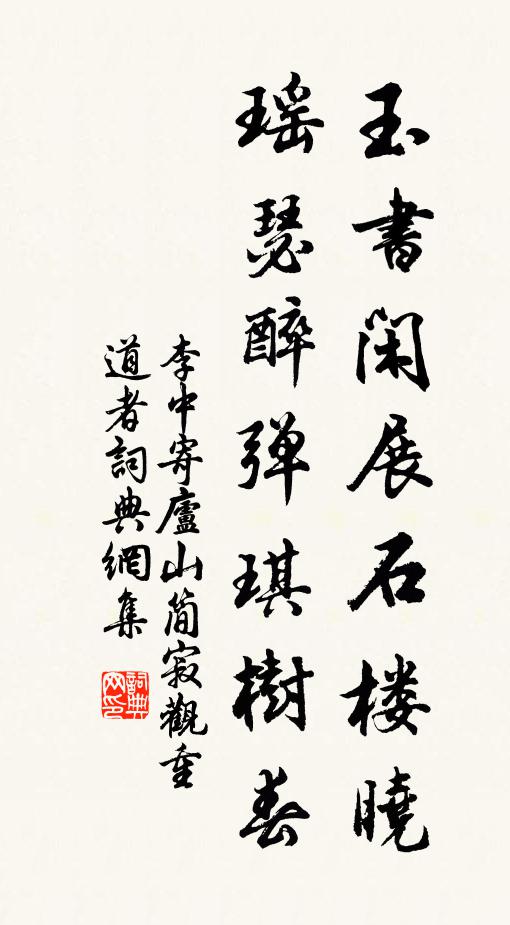 玉書閑展石楼曉
瑶瑟醉弹琪樹春
李中寄廬山簡寂觀重
道者詞典網集
詞典网印